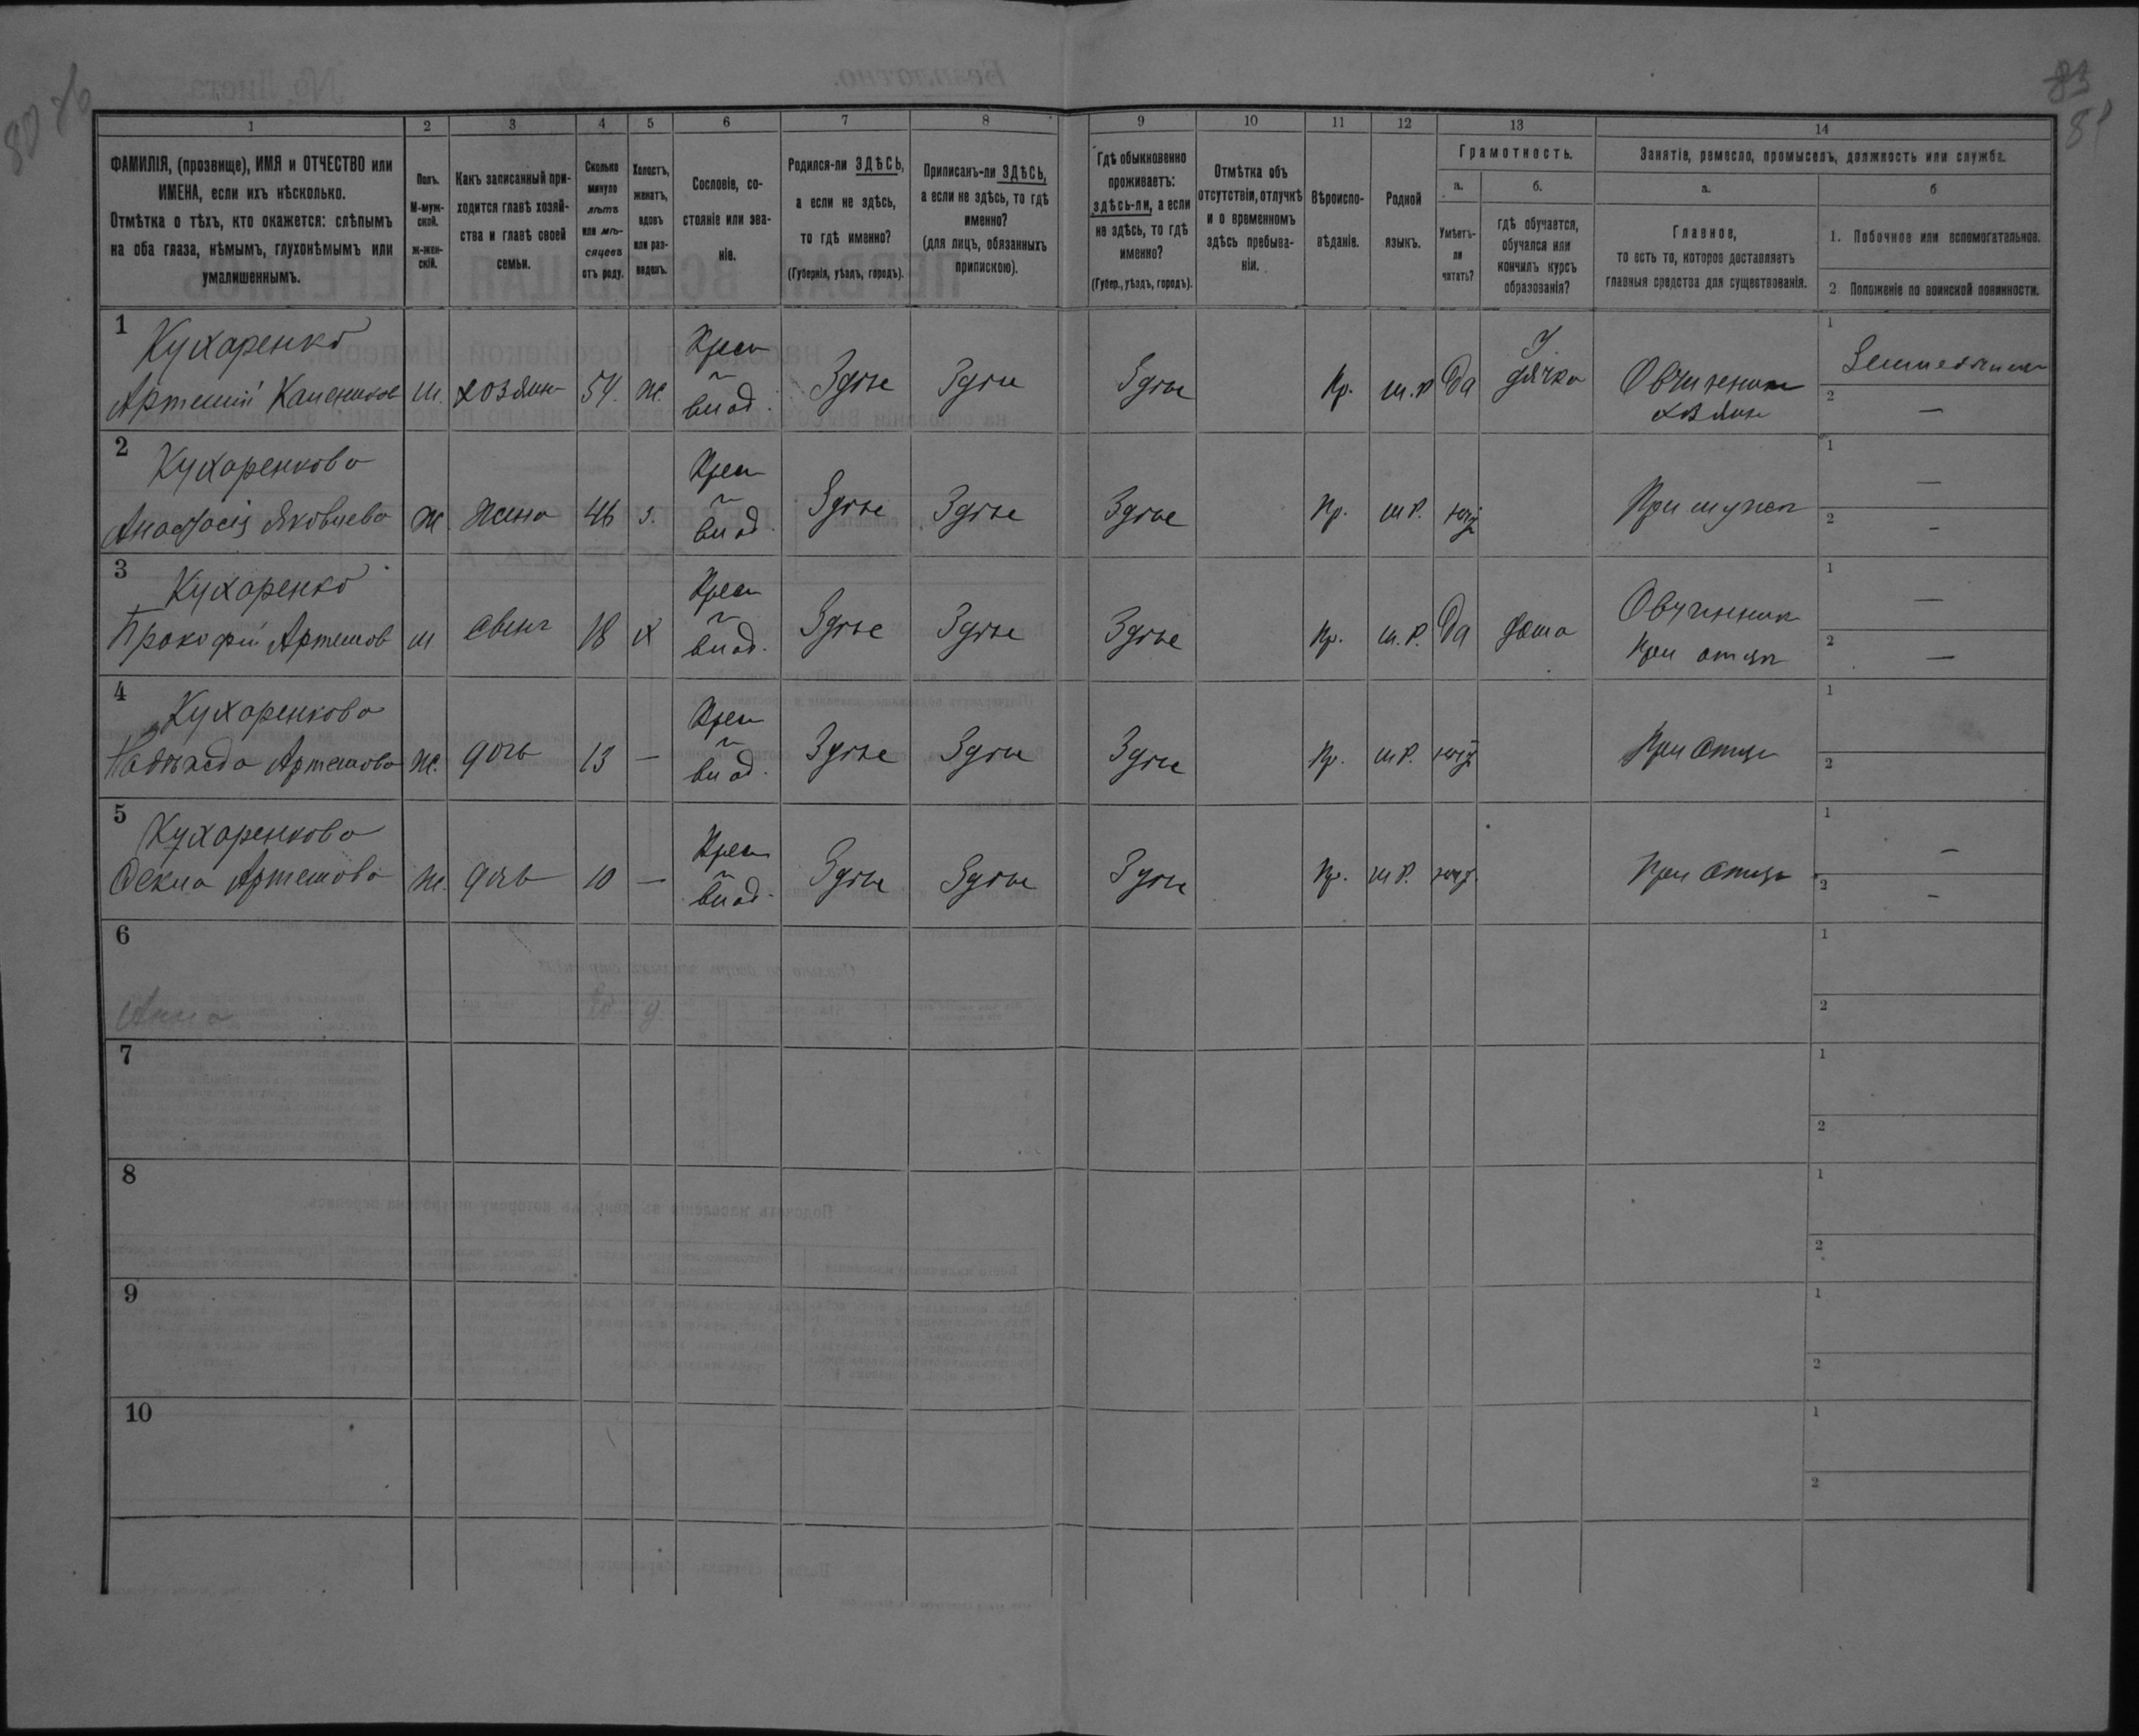 80
83
81
1 2 3 4 5 6 7 8 9 10 11 12 13 14
ФАМИЛІЯ, (прозвище), ИМЯ и ОТЧЕСТВО или
ИМЕНА, если ихъ нѣсколько.
Отмѣтка о тѣхъ, кто окажется: слѣпымъ
на оба глаза, нѣмымъ, глухонѣмымъ или
умалишеннымъ.
Полъ.
М-муж-
ской.
ж-жен-
скій.
Какъ записанный при-
ходится главѣ хозяй-
ства и главѣ своей
семьи.
Сколько
минуло
лѣтъ
или мѣ-
сяцевъ
отъ роду.
Холостъ,
женатъ,
вдовъ
или раз-
веденъ.
Сословіе, со-
стояніе или зва-
ніе.
Родился-ли ЗДѢСЬ,
а если не здѣсь,
то гдѣ именно?
(Губернія, уѣздъ, городъ).
Приписанъ-ли ЗДѢСЬ,
а если не здѣсь, то гдѣ
именно?
(для лицъ, обязанныхъ
припискою).
Гдѣ обыкновенно
проживаетъ:
здѣсь-ли, а если
не здѣсь, то гдѣ
именно?
(Губер., уѣздъ, городъ).
Отмѣтка объ
отсутствіи, отлучкѣ
и о временномъ
здѣсь пребыва-
ніи.
Вѣроиспо-
вѣданіе.
Родной
языкъ.
Грамотность.
а.
Умѣетъ-
ли
читать?
б.
гдѣ обучается,
обучался или
кончилъ курсъ
образованія?
Занятіе, ремесло, промыселъ, должность или служба.
а.
Главное,
то есть то, которое доставляетъ
главныя средства для существованія.
б
1. Побочное или вспомогательное.
2 Положеніе по воинской повинности.
1
Кухаренко
Артемій
м. хозяин 54. ж.
Крест
влад.
Здѣсь Здѣсь Здѣсь Пр. м.р Да
У
дячка
Овчинник
хозяин
1
2 —
2
Кухаренкова
Анастасія Яковлева ж Жена 46 з.
Крест
влад.
Здѣсь Здѣсь Здѣсь Пр. м р. нѣт
При мужѣ
1 —
2 -
3
Кухаренко
Прокофій Артемов м сынъ 18 х
Крест
влад.
Здѣсь Здѣсь Здѣсь Пр. м. р. Да дома
Овчинник
При отцѣ
1 —
2 —
4
Кухаренкова
Надѣжда Артемова ж. дочь 13 —
Крест
влад.
Здѣсь Здѣсь Здѣсь Пр. м р. нѣт
При отцѣ
1
2
5
Кухаренкова
Фекла Артемова ж. дочь 10 —
Крест
влад.
Здѣсь Здѣсь Здѣсь Пр. м р. нѣт.
При отцѣ
1 —
2 -
6
1
Анна
2
7
1
2
8
1
2
9
1
2
10
1
2